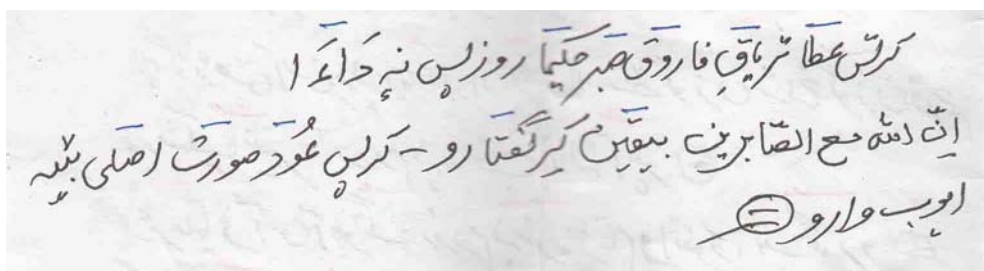 کرتس عطا تریاقِ فاروق صبر حکیما روزس نہٕ دَاءَ ا
انّ اللہ مع الصّابرین بیقین کِر گفتا رو - کرلس عُود صورت اصلی بییہ
ایوب وارو